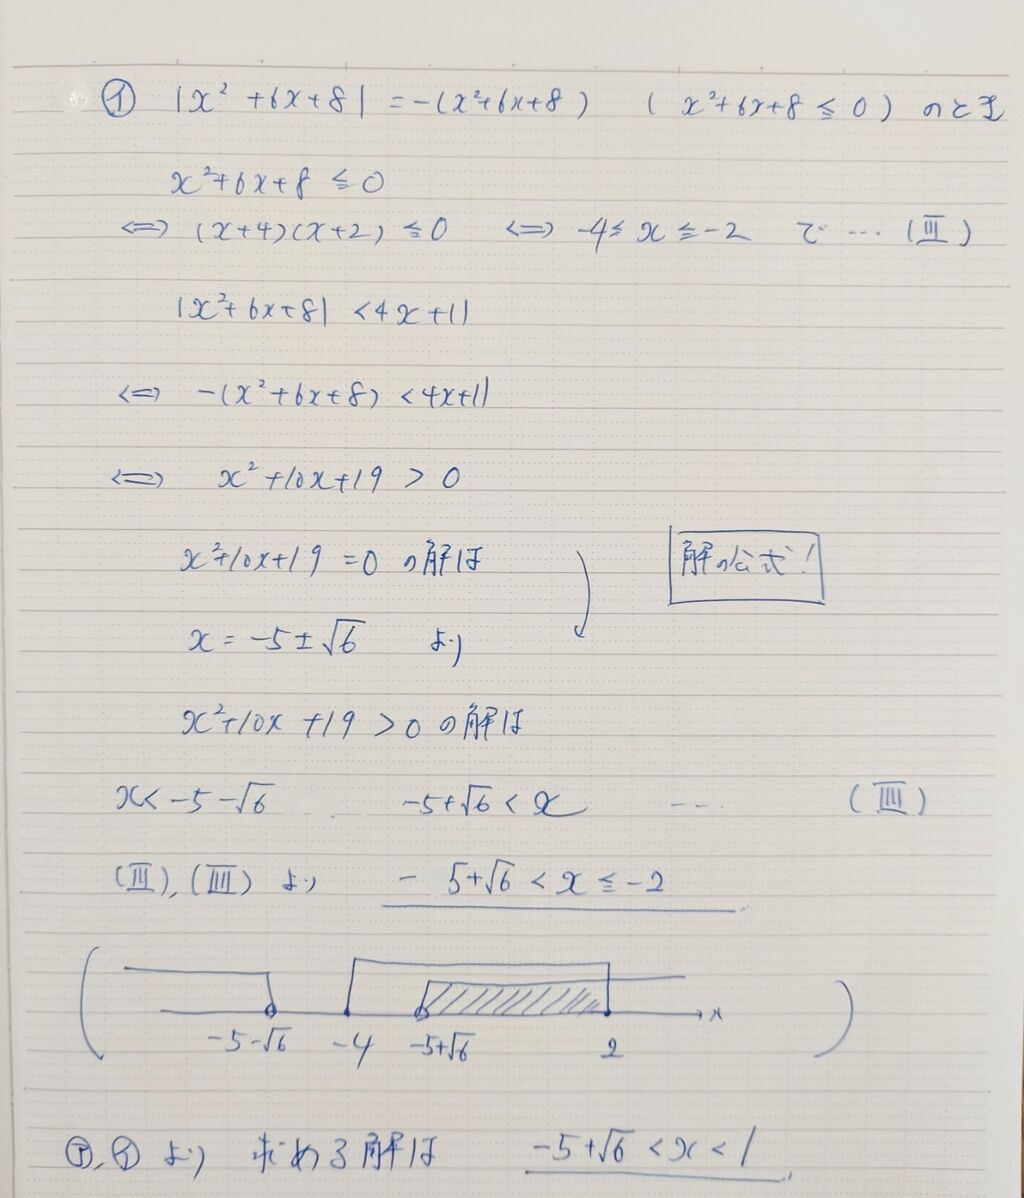 ㋑ |x²+6x+8| = -(x²+6x+8) (x²+6x+8 ≦ 0) のとき
x²+6x+8 ≦ 0
⇔ (x+4)(x+2) ≦ 0 ⇔ -4 ≦ x ≦ -2 で … (Ⅲ)
|x²+6x+8| < 4x+11
⇔ -(x²+6x+8) < 4x+11
⇔ x²+10x+19 > 0
x²+10x+19 = 0 の解は 解の公式!
x = -5±√6 より
x²+10x+19 > 0 の解は
x < -5-√6 -5+√6 < x … (Ⅲ)
(Ⅲ), (Ⅲ) より -5+√6 < x ≦ -2
-5-√6 -4 -5+√6 2 x
㋐, ㋑ より 求める解は -5+√6 < x < 1